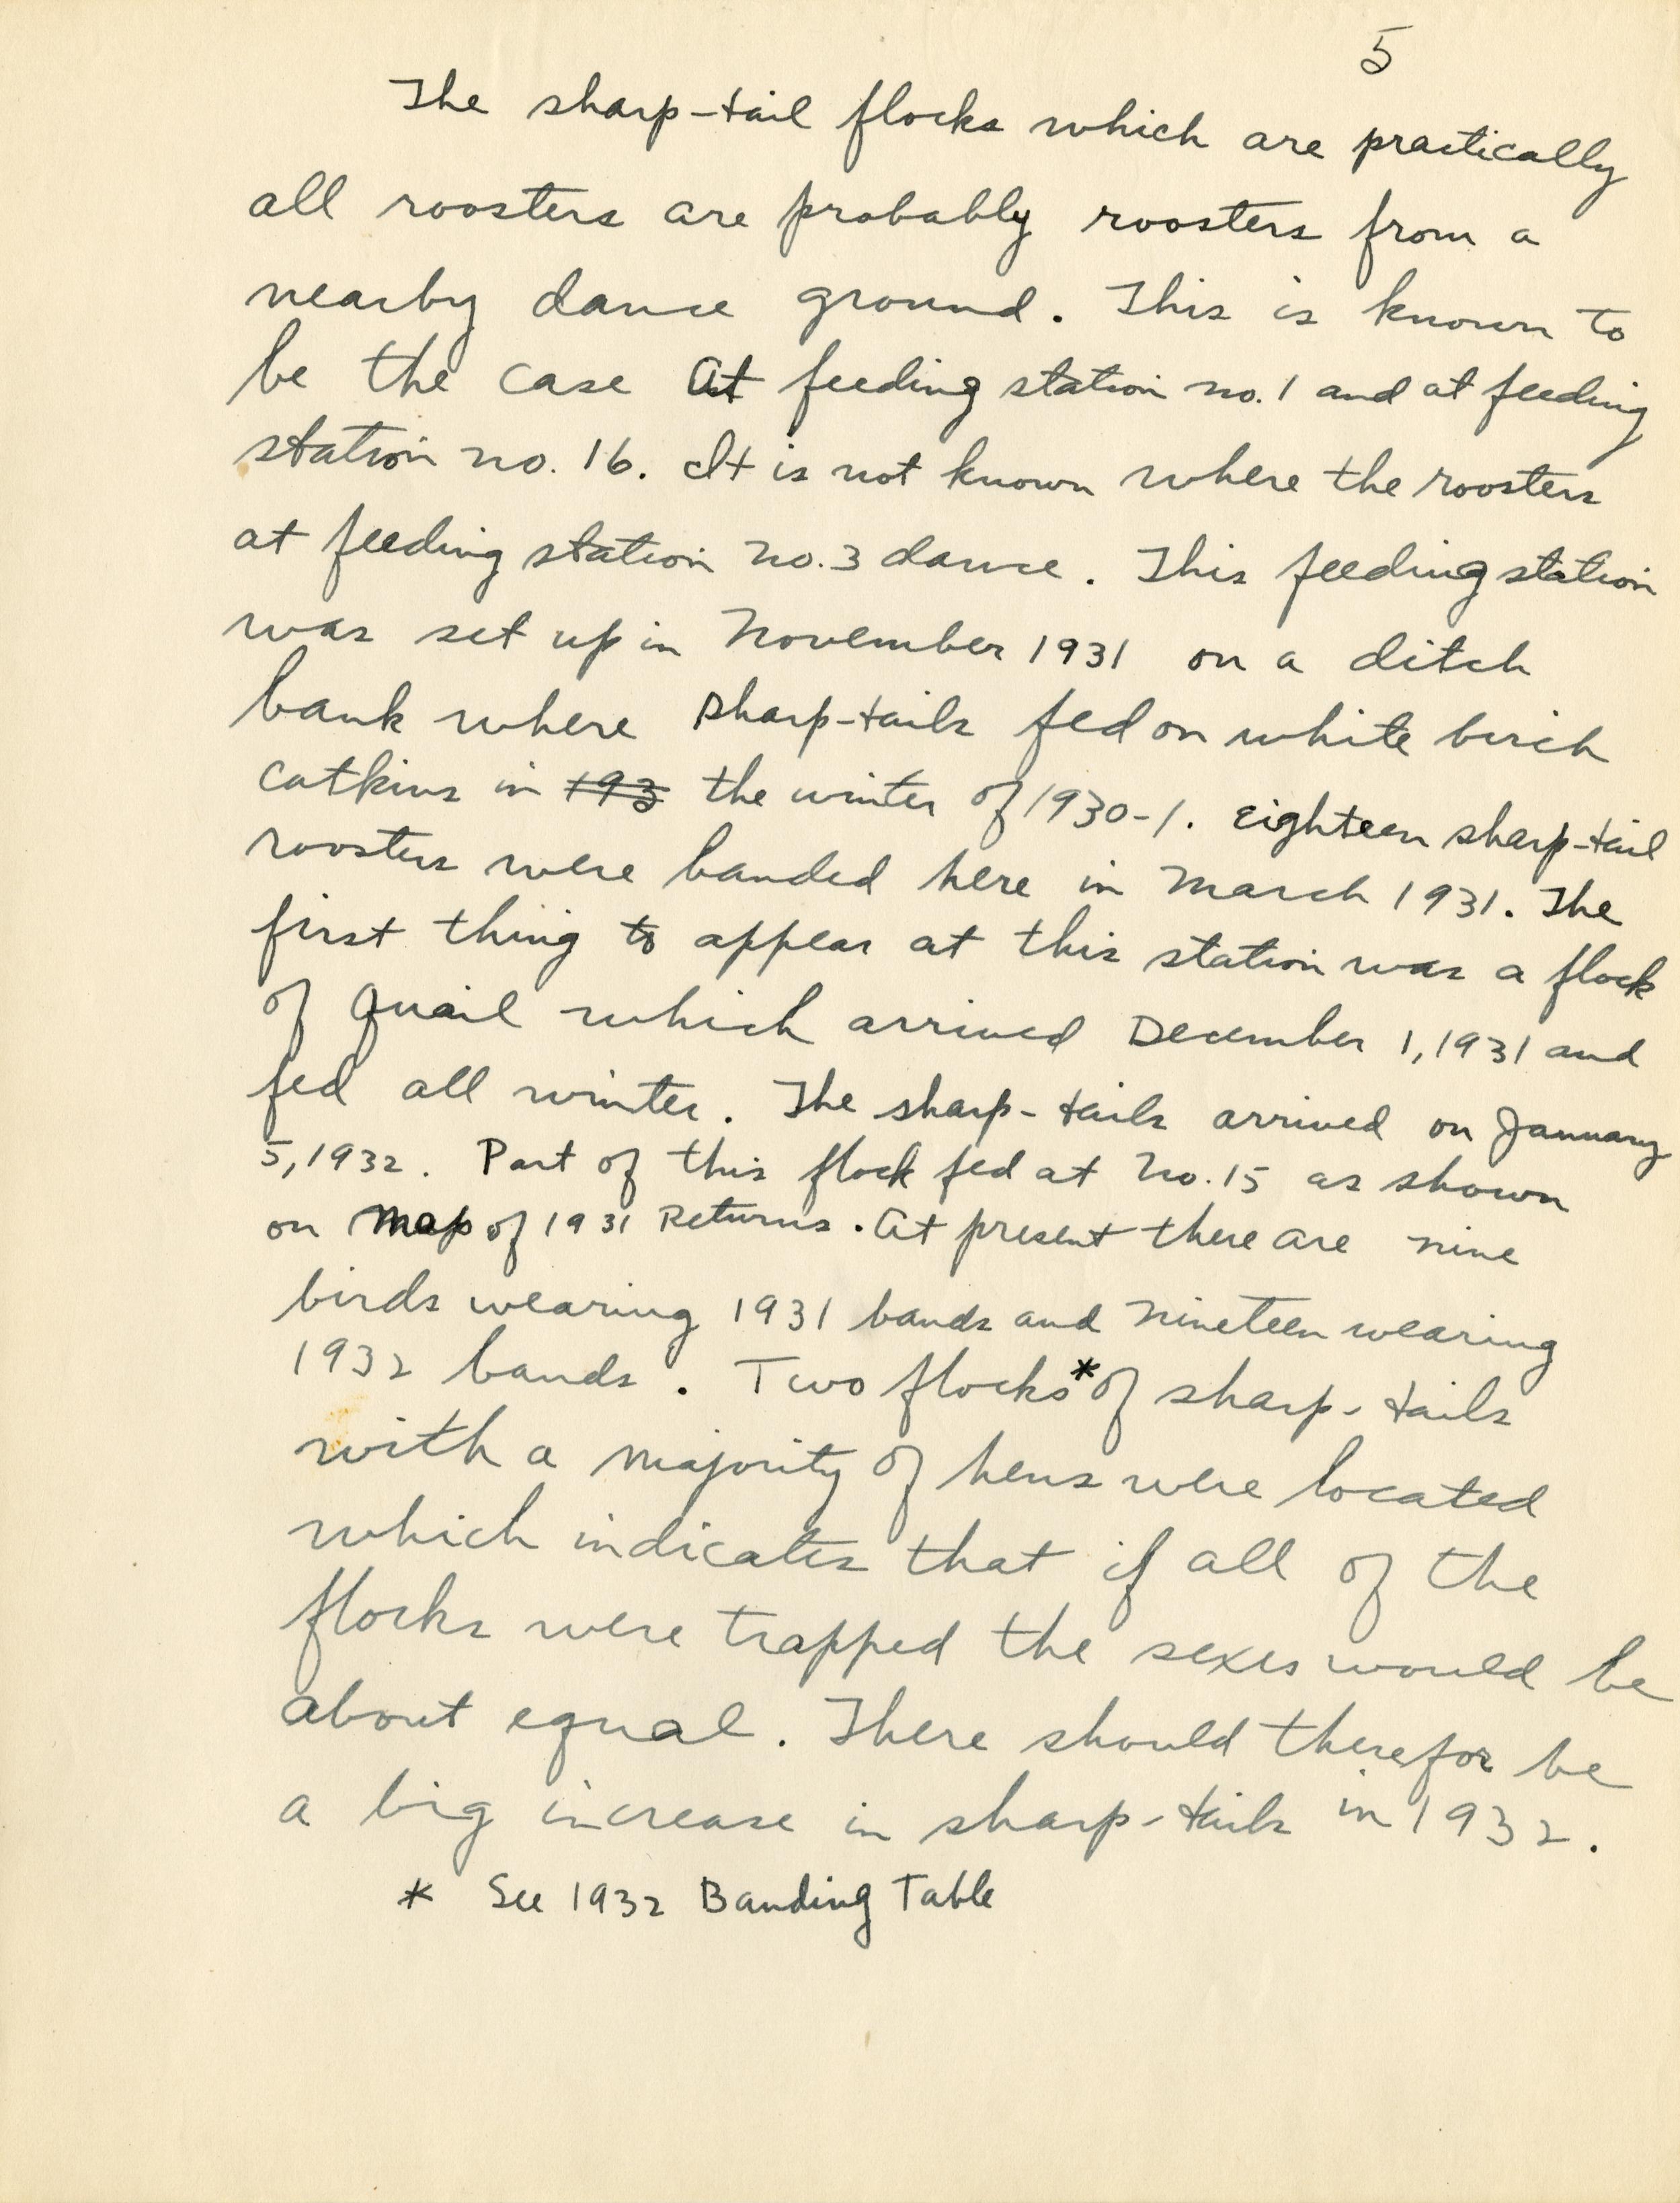 5
The sharp-tail flocks which are practically
all roosters are probably roosters from a
nearby dance ground. This is known to
be the case at feeding station no. 1 and at feeding
station no. 16. It is not known where the roosters
at feeding station no. 3 dance. This feeding station
was set up in November 1931 on a ditch
bank where sharp-tails fed on white birch
catkins in ~~193~~ the winter of 1930-1. Eighteen sharp-tail
roosters were banded here in March 1931. The
first thing to appear at this station was a flock
of quail which arrived December 1, 1931 and
fed all winter. The sharp-tails arrived on January
5, 1932. Part of this flock fed at no. 15 as shown
on Map of 1931 Returns. At present there are nine
birds wearing 1931 bands and nineteen wearing
1932 bands. Two flocks* of sharp-tails
with a majority of hens were located
which indicates that if all of the
flocks were trapped the sexes would be
about equal. There should therefor be
a big increase in sharp-tails in 1932.
* See 1932 Banding Table